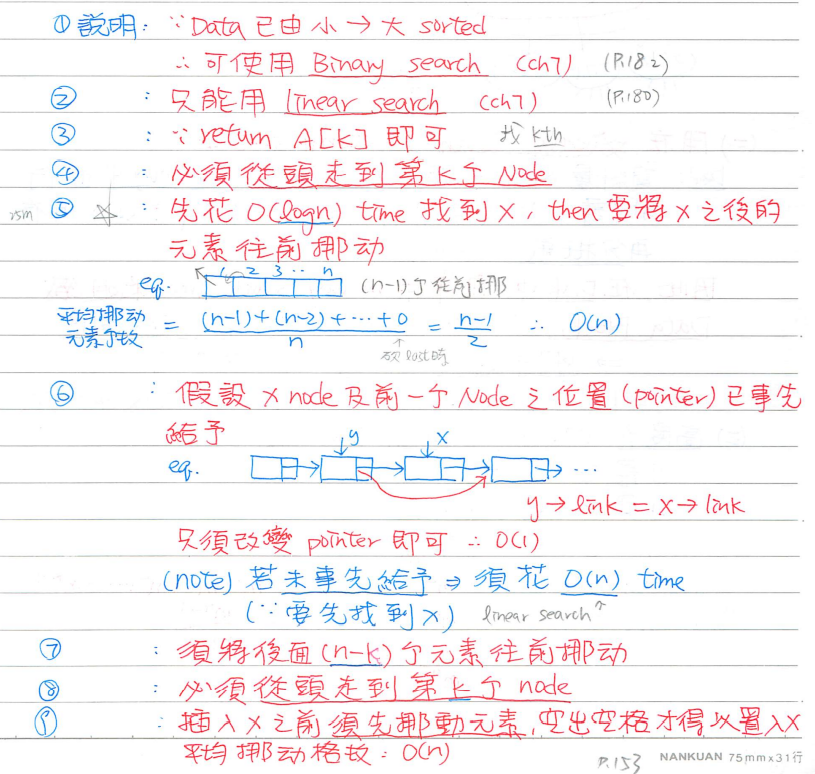 ① 說明: ∵ Data 已由小 → 大 sorted
∴ 可使用 Binary search (ch7) (P.182)
② : 只能用 linear search (ch7) (P.180)
③ : ∵ return A[K] 即可 找 kth
④ : 必須從頭走到第 K 个 Node
⑤ ☆ : 先花 O(logn) time 找到 X, then 要將 X 之後的
元素往前挪动
eg. 1 2 3 ‥ n (n-1)个往前挪
平均挪动元素个數 = (n-1)+(n-2)+…+0 / n = n-1 / 2 ∴ O(n)
↑
last時
⑥ : 假設 X node 及前一个 Node 之位置 (pointer) 已事先
給予
y X
eg. → → → → …
y → link = X → link
只須改變 pointer 即可 ∴ O(1)
(note) 若未事先給予 ⇒ 須花 O(n) time
(∵ 要先找到 X) linear search ↑
⑦ : 須將後面 (n-k) 个元素往前挪动
⑧ : 必須從頭走到第 k 个 node
⑨ : 插入 X 之前須先挪動元素, 空出空格才得以置入 X
平均挪动格數: O(n)
P.153 NANKUAN 75mm x 31行